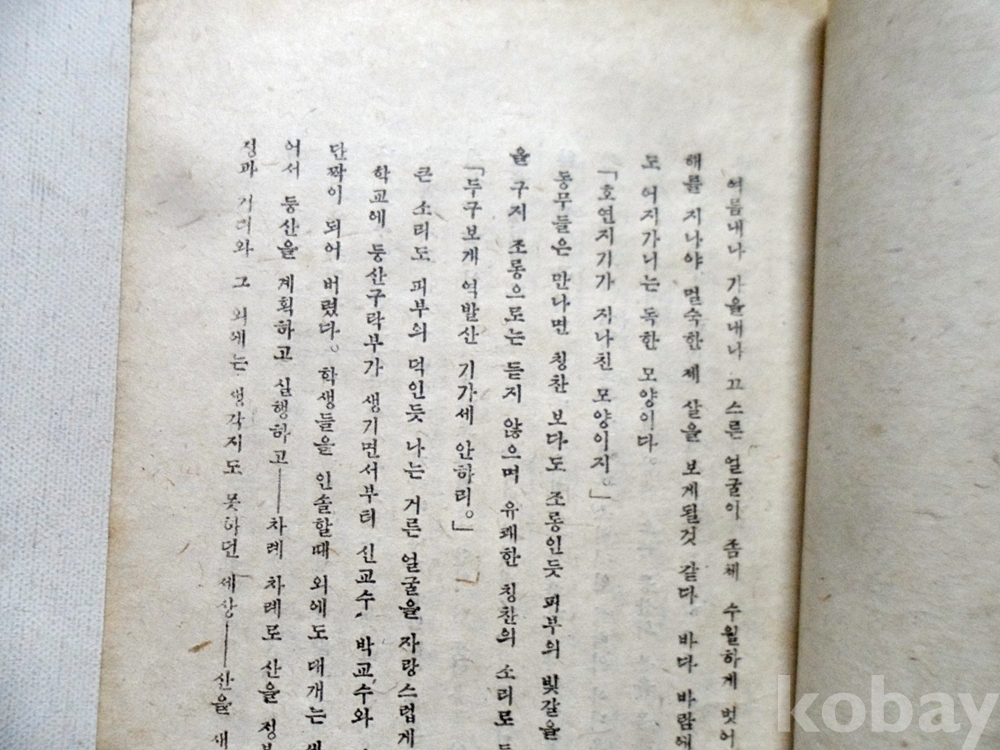 여름내나 가을내나 끄스른 얼굴이 좀체 수월하게 벗어
해를 지나야 멀숙한 제 살을 보게될것 같다. 바다 바람에
도 어지가니는 독한 모양이다.
「호연지기가 지나친 모양이지。」
동무들은 만나면 칭찬 보다도 조롱인듯 피부의 빛갈을
을 구지 조롱으로는 듣지 않으며 유쾌한 칭찬의 소리로
「두구보게 역발산 기가세 안하리。」
큰 소리도 피부의 덕인듯 나는 거른 얼굴을 자랑스럽게
학교에 등산구락부가 생기면서부터 신교수, 박교수와
단짝이 되어 버렸다。학생들을 인솔할때 외에도 대개는
어서 등산을 계획하고 실행하고——차례 차례로 산을 정
정과 거리와 그 외에는 생각지도 못하던 세상——산을 새
kobay